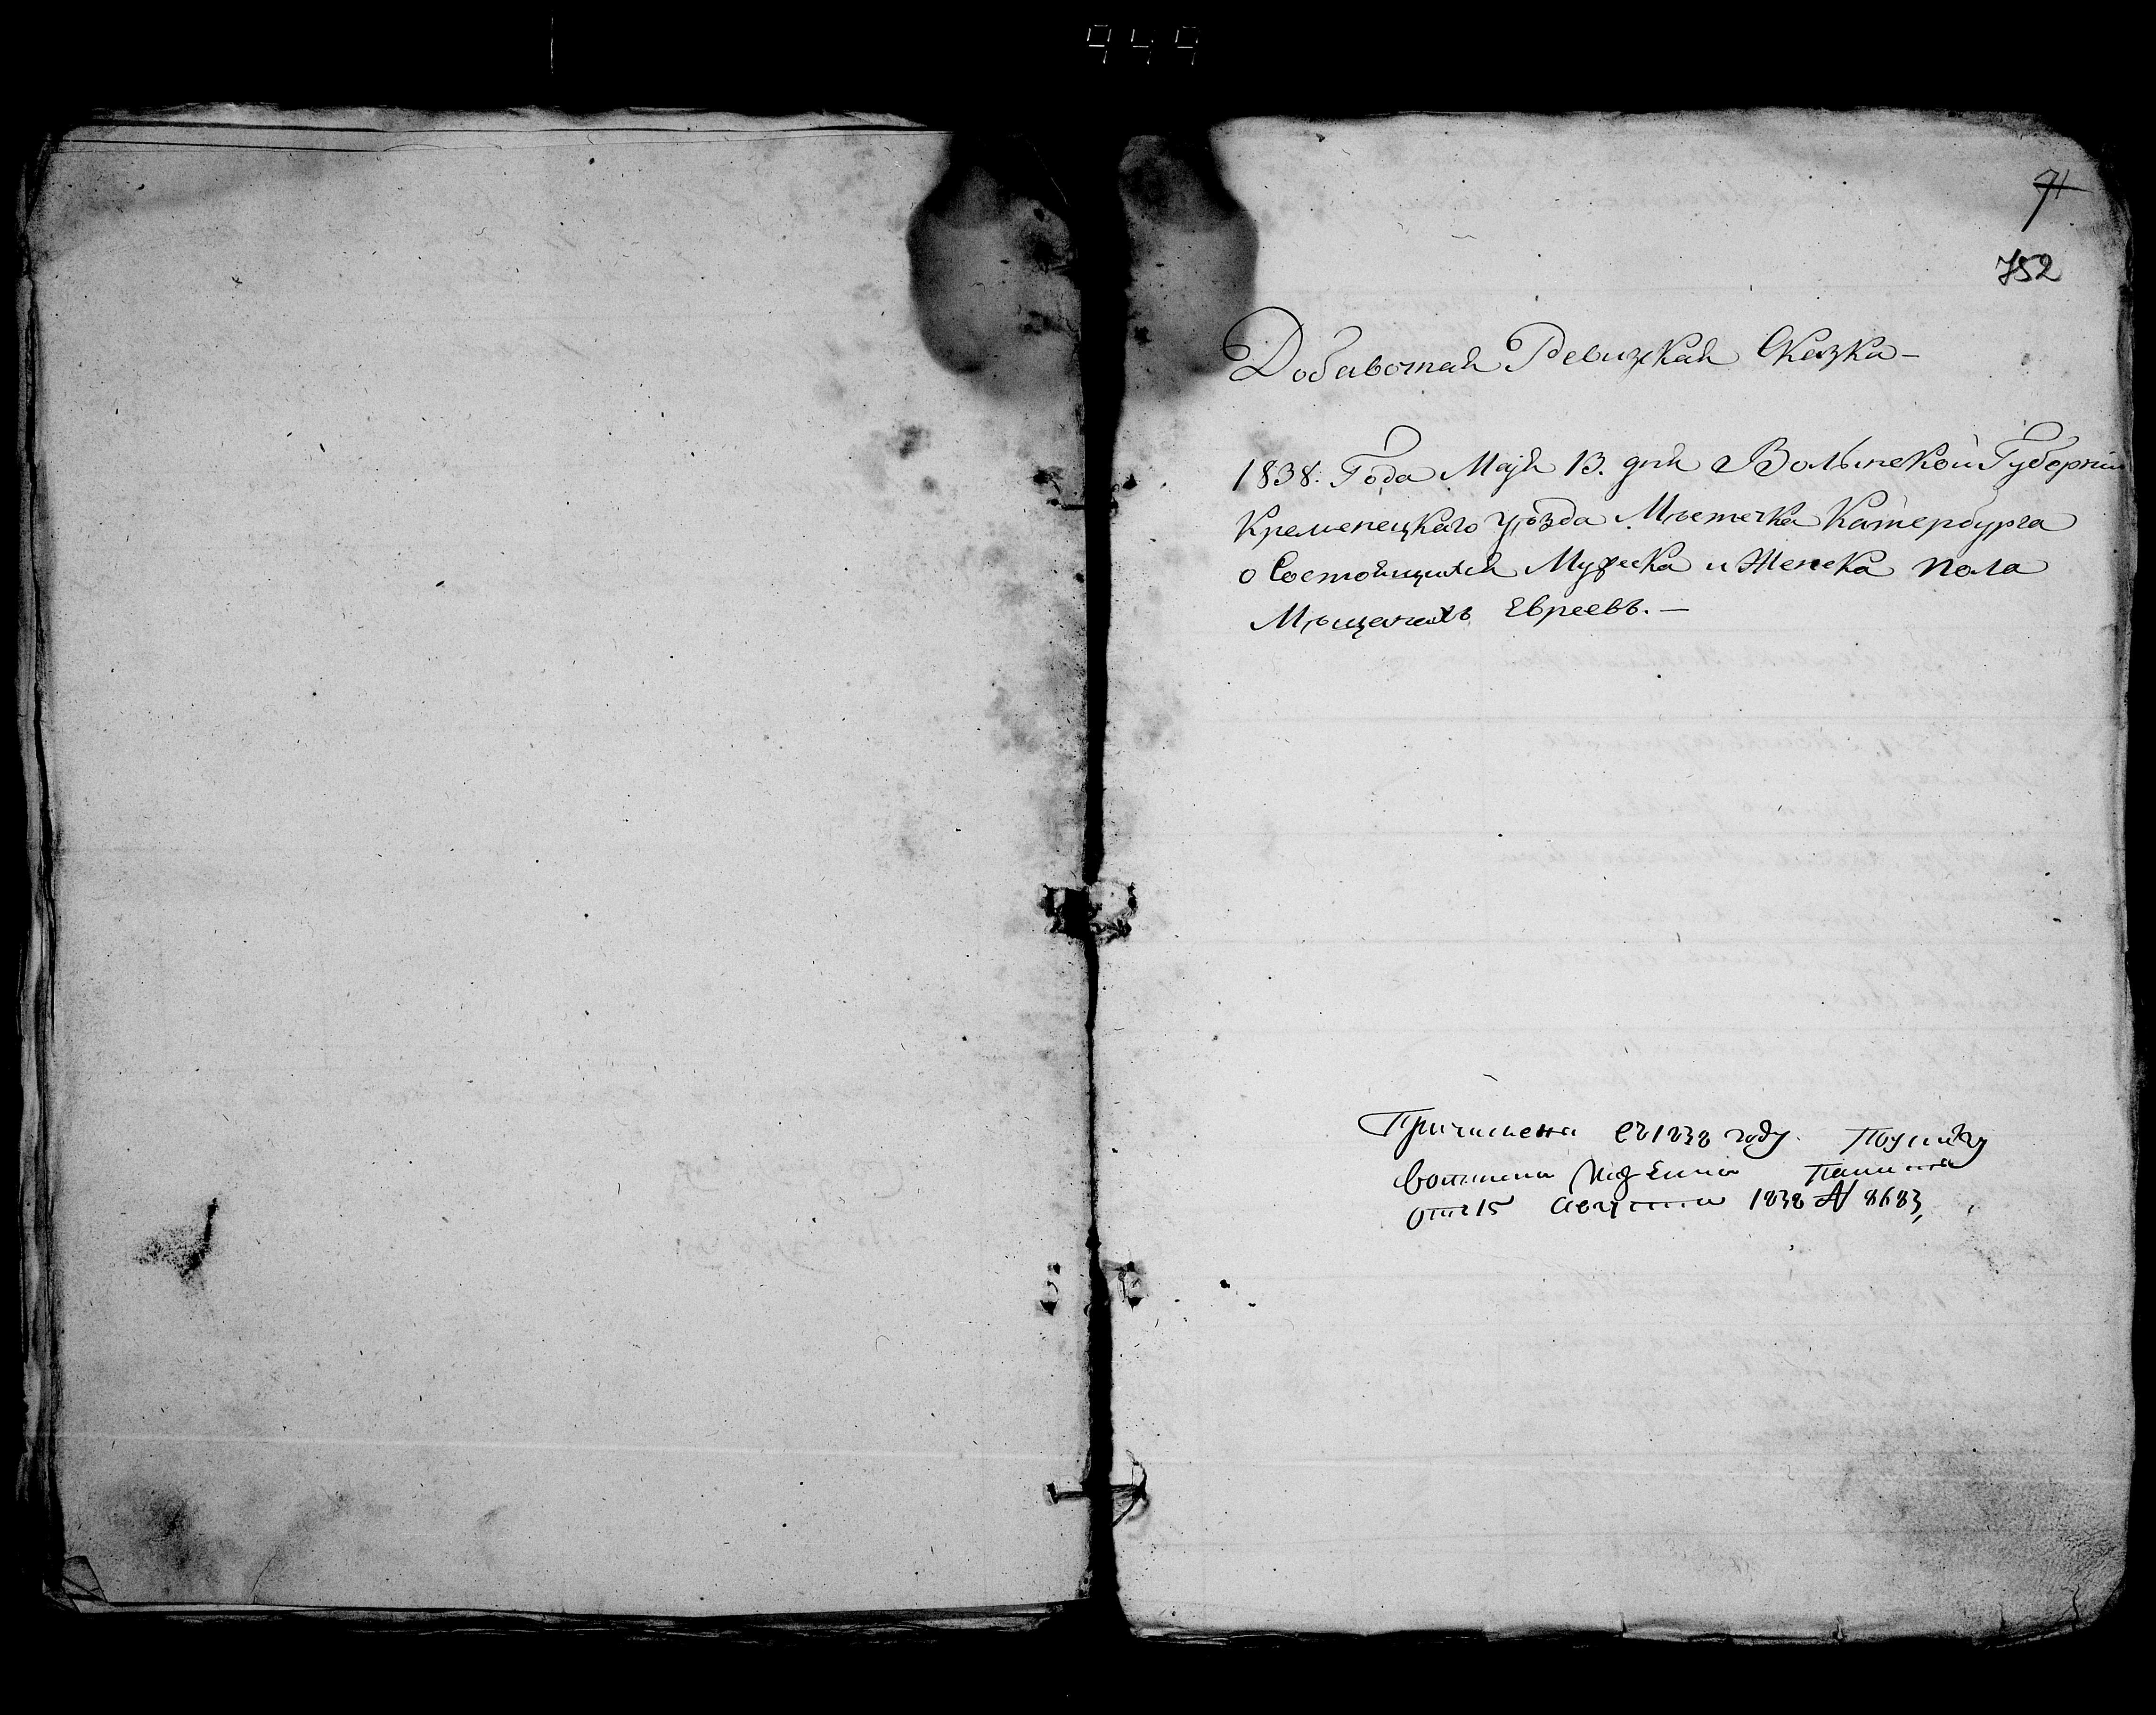 949
71
752
Добавотная Ревизкая Сказка –
1838. Года Мaія 13. дня Волынской Губерніи
Кременецкаго уѣзда Мѣстечка Катербурга
о Состоящихся Мужеска и Женска пола
Мѣщанахъ Евреевъ. –
Причислена съ 1838 году.
Палаты
отъ 15 Августа 1838 № 8683,